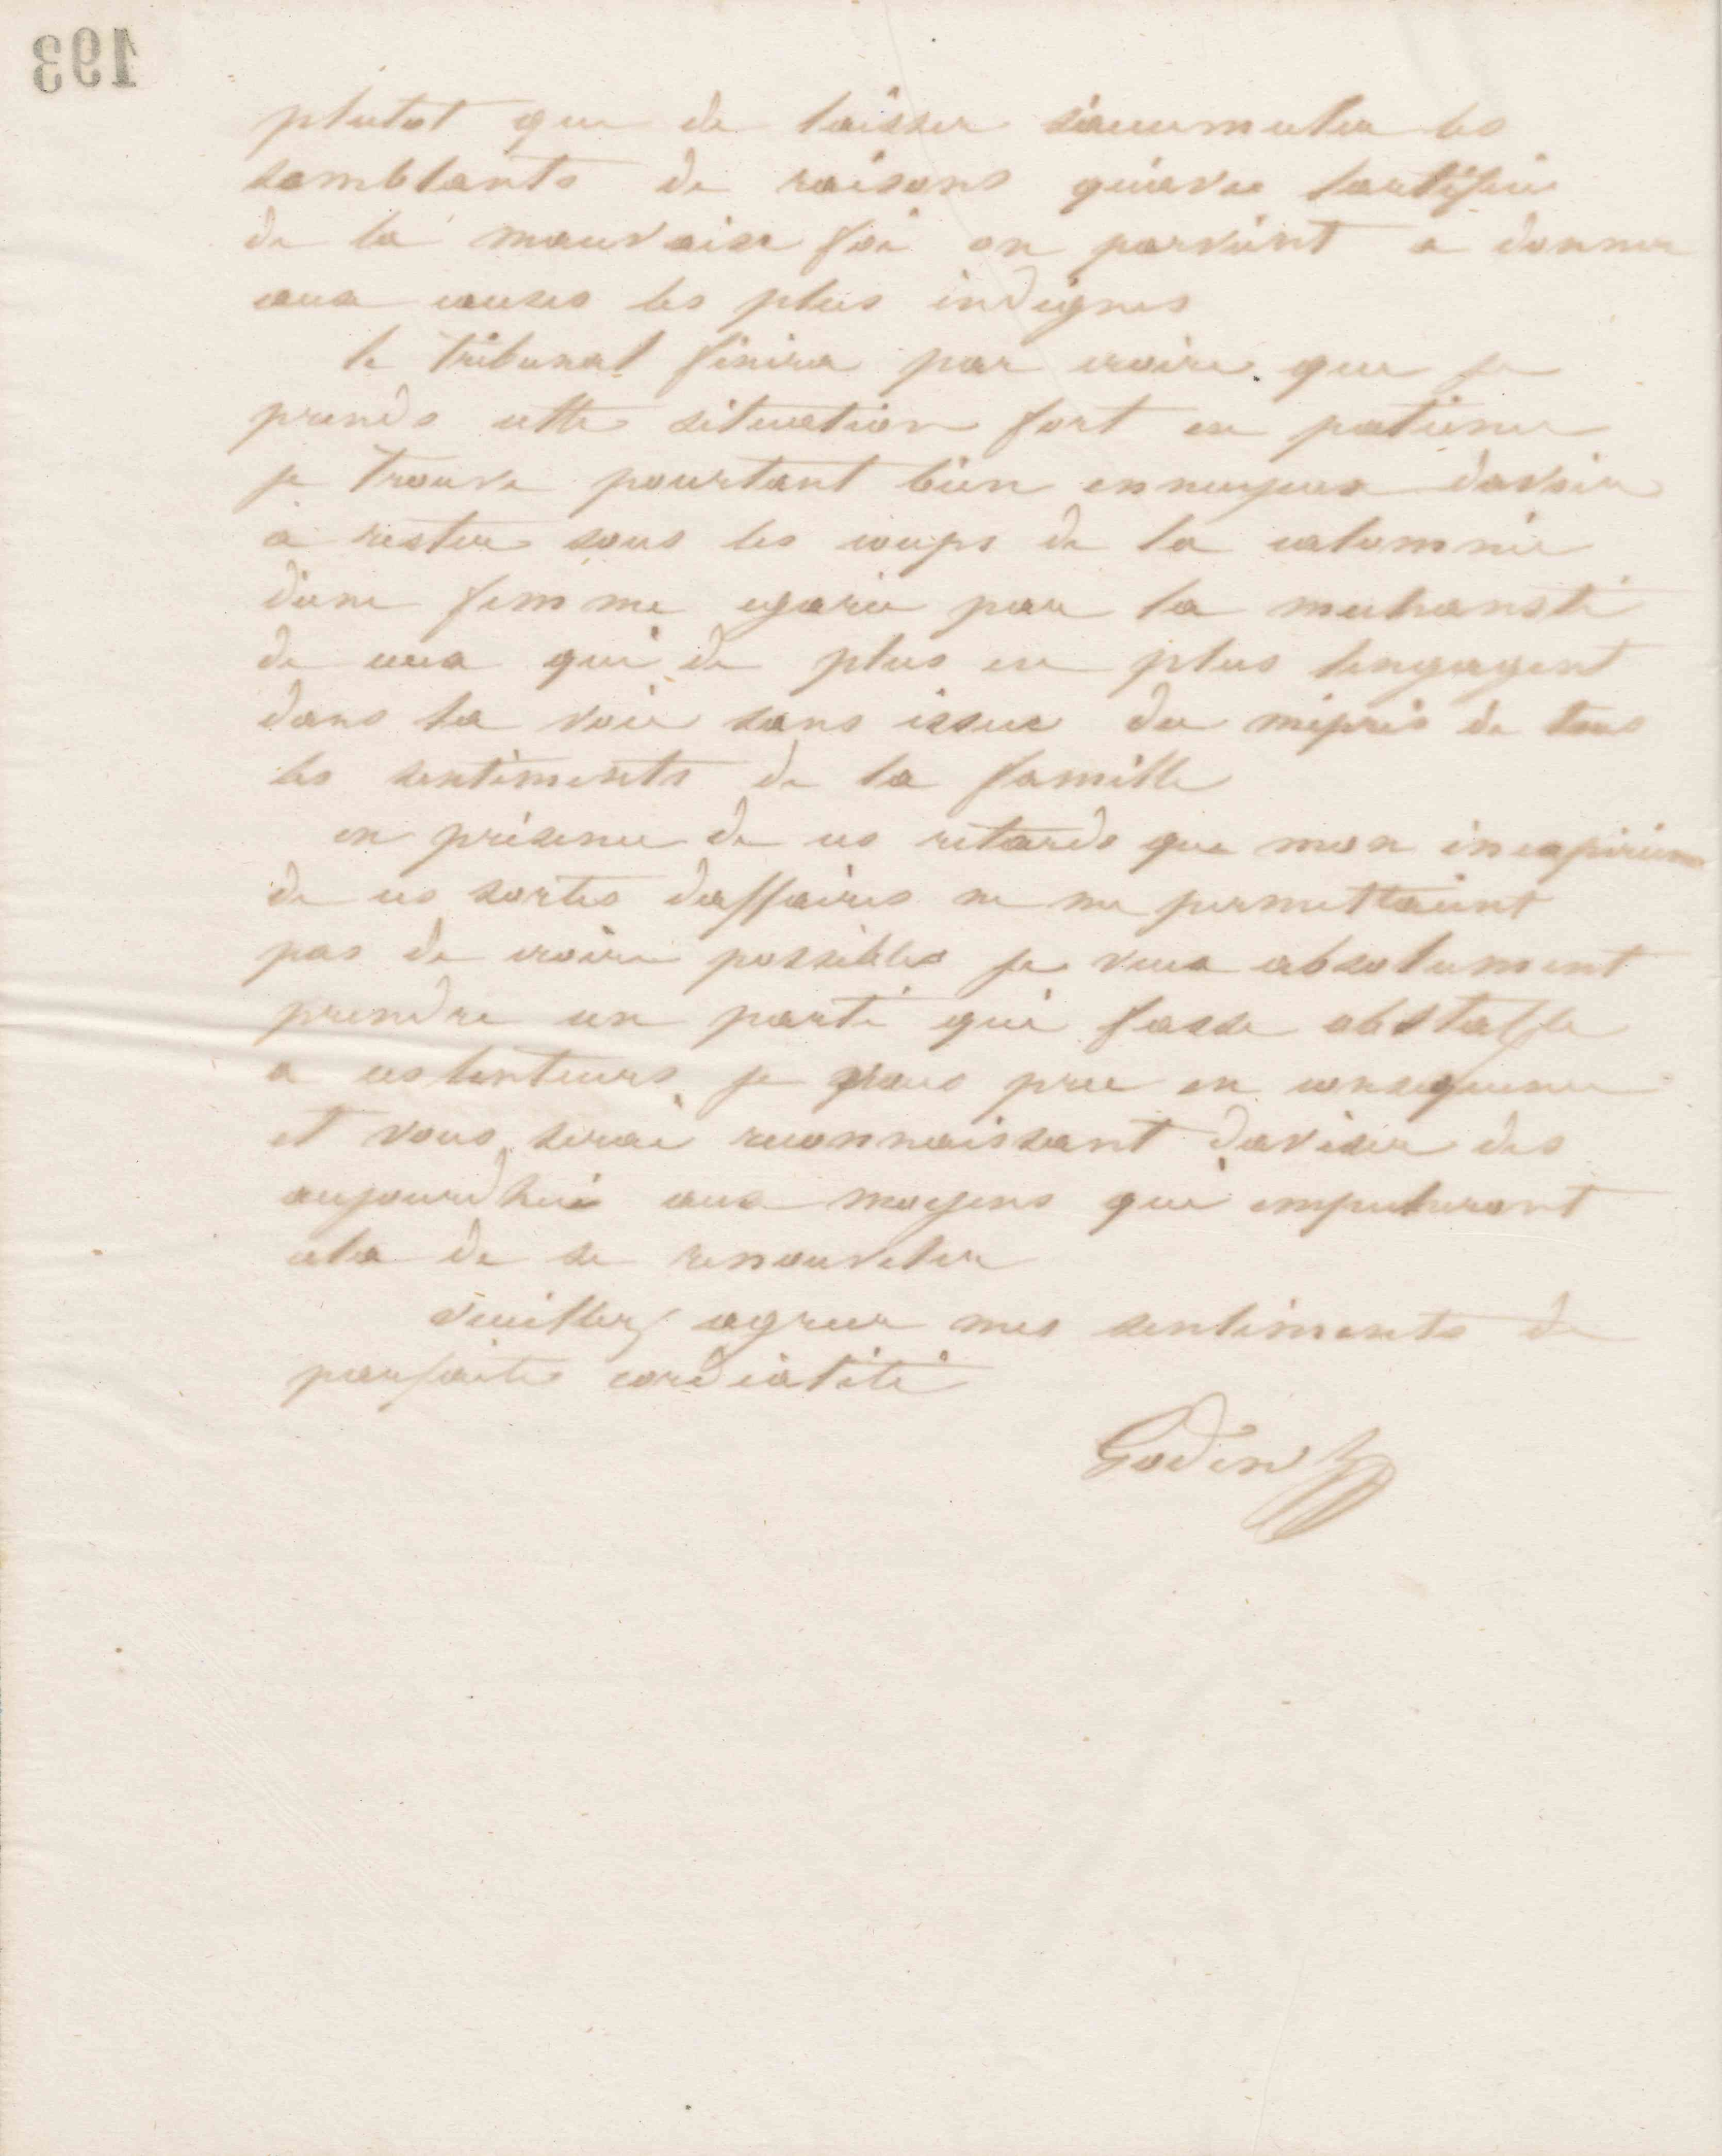 193
plutot que de laisser s'accumuler les
semblants de raisons qu'avec l'artifice
de la mauvaise foi on parvient a donner
aux causes les plus indignes
le tribunal finira par croire que je
prends cette situation fort en patience
je trouve pourtant bien ennuyeux d'avoir
à rester sous les coups de la calomnie
d'une femme egarée par la mechanseté
de ceux qui de plus en plus l'engagent
dans la voie sans issue du mépris de tous
les sentiments de la famille
en présence de ces retards que mon inexpérience
de ces sortes d'affaires ne me permettaient
pas de croire possibles je veux absolument
prendre un parti qui fasse obstacle
a ces lenteurs je vous prie en consequence
et vous serai reconnaissant d'aviser des
aujourd'hui aux moyens qui empecheront
cela de se renouveler
veuillez agreer mes sentiments de
parfaite cordialité
Godin